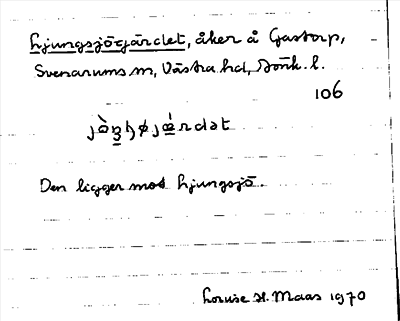 Ljungsjögärdet, åker å Gastorp,
Svenarums sn, Västra hd, Jönk. l.
106
Den ligger mot Ljungsjö.
Louise H. Maas 1970